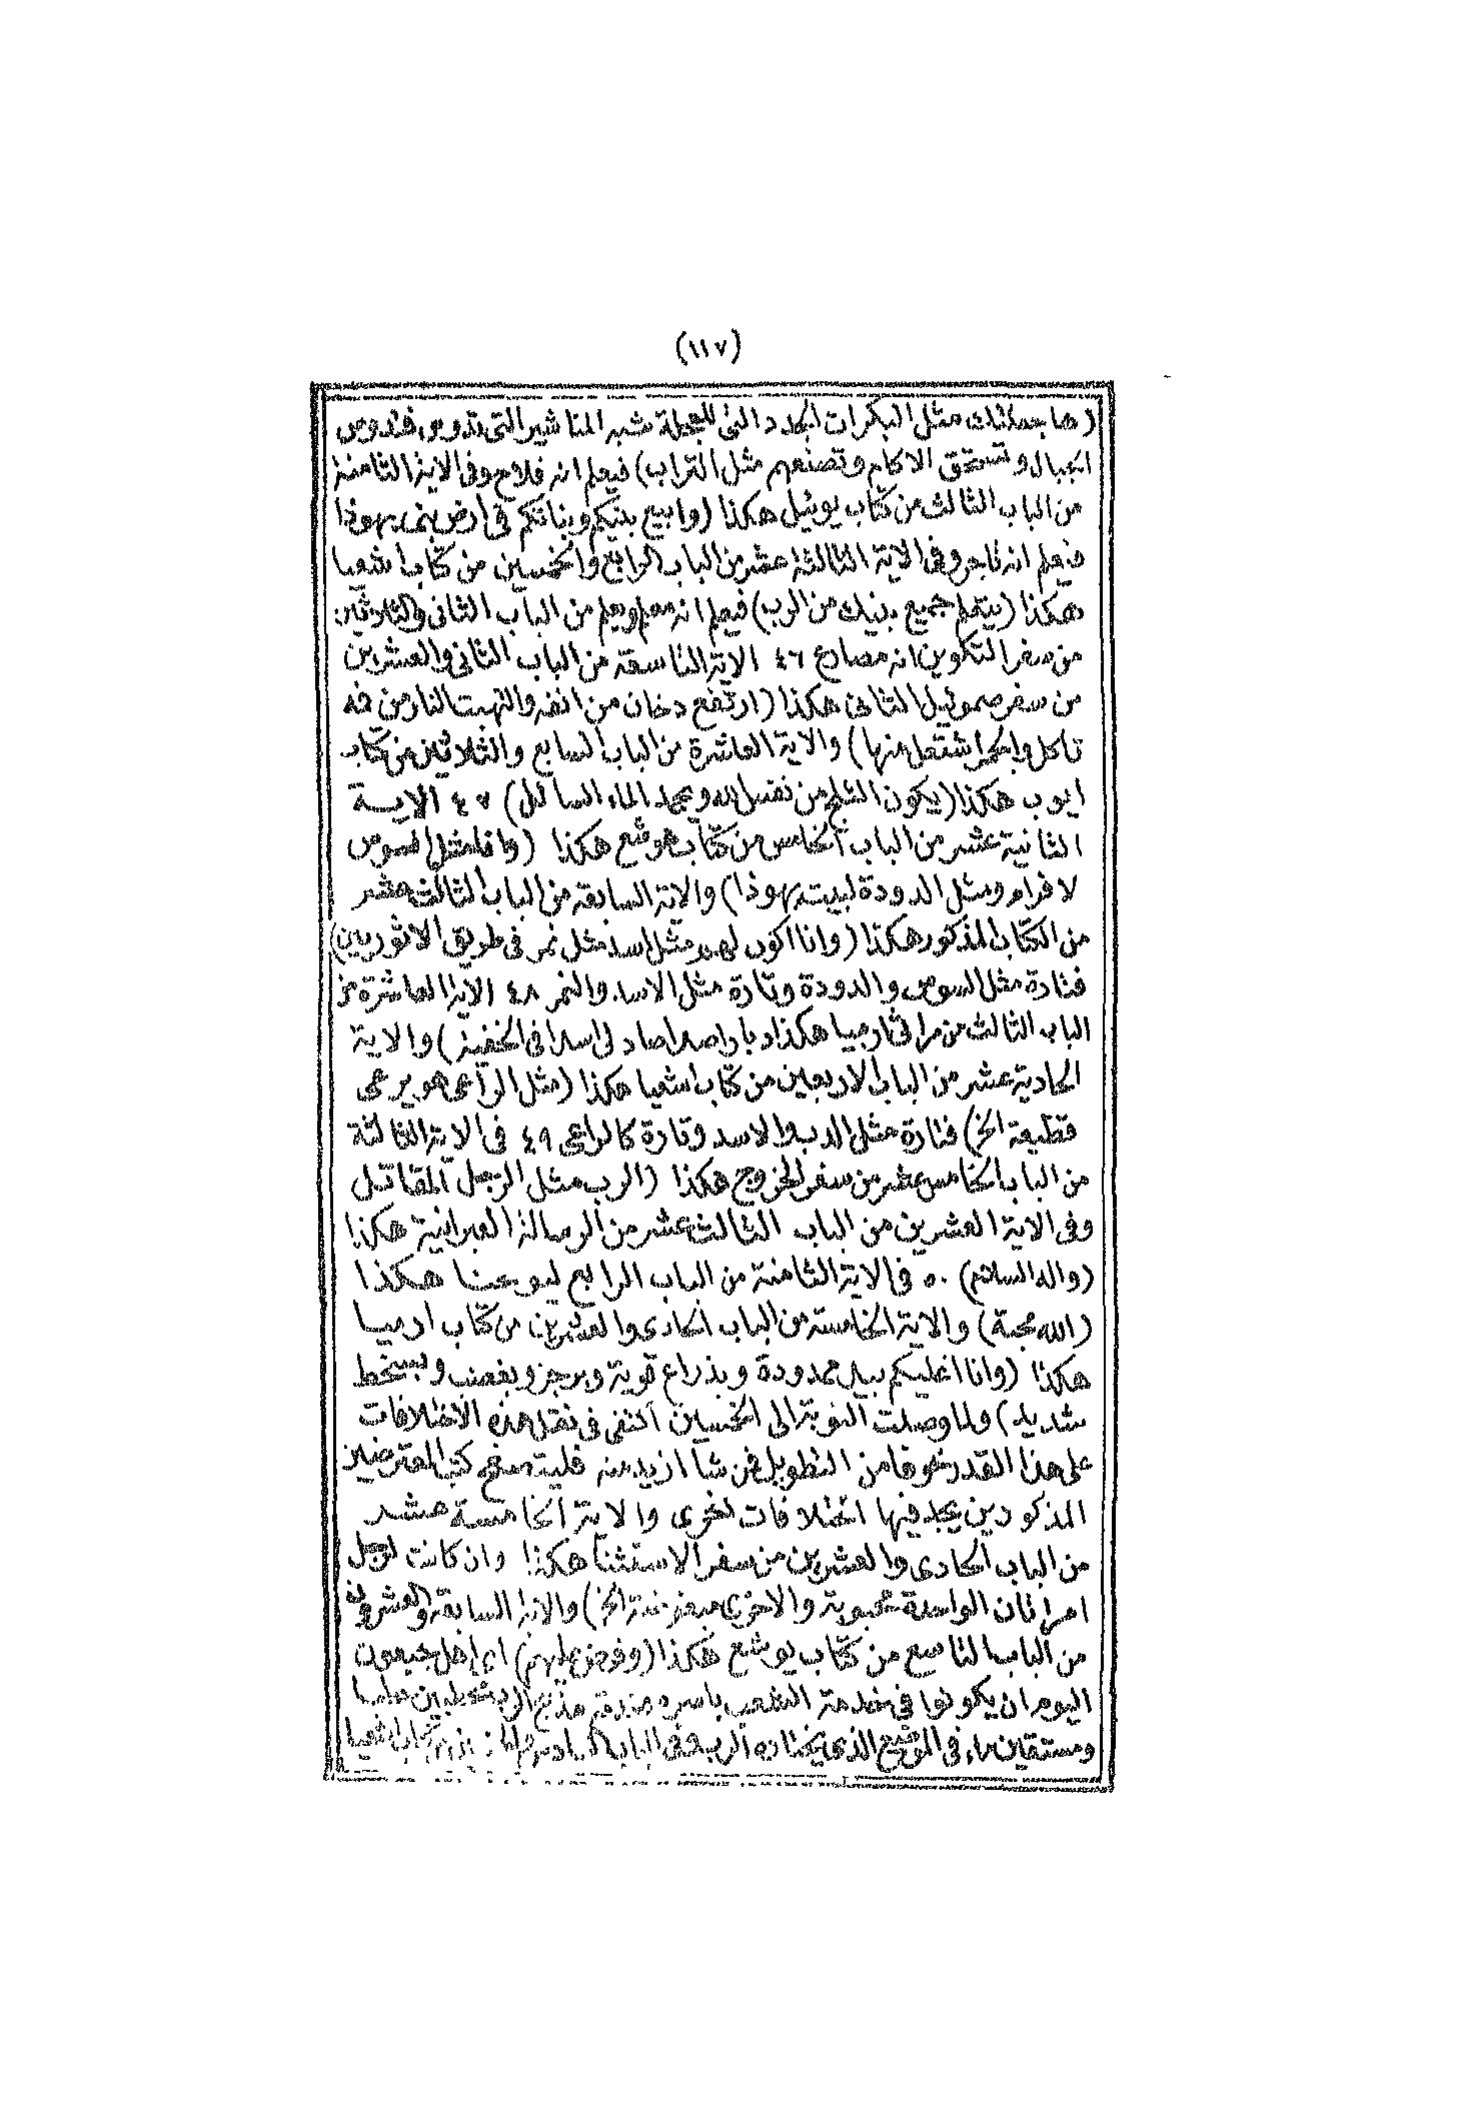 (١١٧)
(ها جعلتك مثل البكرات الجدد التى للعجلة شبه المناشير التى تدوس فتدوس
الجبال وتستحق الاكام وتصنعهم مثل التراب) فيعلم انه فلاح وفى الاية الثامنة
من الباب الثالث من كتاب يوئيل هكذا (وابيع بنيكم وبناتكم فى ارض بنى يهوذا
فيعلم انه تاجر وفى الاية الثالثة عشر من الباب الرابع والخمسين من كتاب اشعيا
هكذا (يتعلم جميع بنيك من الرب) فيعلم انه معلم ويعلم من الباب الثانى والثلاثين
من سفر التكوين انه مصارع ٤٦ الاية التاسعة من الباب الثانى والعشرين
من سفر صموئيل الثانى هكذا (ارتفع دخان من انفه والتهبت النار من فمه
تاكل والجمر اشتعل منها) والاية العاشرة من الباب السابع والثلاثين من كتاب
ايوب هكذا (يكون الثلج من نفس الله ويجمد الماء السائل) ٤٧ الاية
الثانية عشر من الباب الخامس من كتاب هوشع هكذا (وانا مثل السوس
لا فرام ومثل الدودة لبيت يهوذا) والاية السابعة من الباب الثالث عشر
من الكتاب المذكور هكذا (وانا اكون لهم مثل اسد مثل نمر فى طريق الاثوريين)
فتارة مثل السوس والدودة وتارة مثل الاسد والنمر ٤٨ الاية العاشرة من
الباب الثالث من مراثى ارميا هكذا دبا راصدا صار لى اسدا فى الخفية) والاية
الحادية عشر من الباب الاربعين من كتاب اشعيا هكذا (مثل الراعى هو يرعى
قطيعة الخ) فتارة مثل الدب والاسد وتارة كالراعى ٤٩ فى الاية الثالثة
من الباب الخامس عشر من سفر الخروج هكذا (الرب مثل الرجل المقاتل
وفى الاية العشرين من الباب الثالث عشر من الرسالة العبرانية هكذا
(واله السلام) ٥٠ فى الاية الثامنة من الباب الرابع ليوحنا هكذا
(الله محبة) والاية الخامسة من الباب الحادى والعشرين من كتاب ارميا
هكذا (وانا اغلبكم بيد ممدودة وبذراع قوية وبرجز وبغضب وبسخط
شديد) ولما وصلت النوبة الى الخمسين اكتفى فى نقل هذه الاختلافات
على هذا القدر خوفا من التطويل فمن شأ ازيد منه فليتصفح كتب المعترضين
المذكورين يجد فيها اختلافات اخرى والاية الخامسة عشر
من الباب الحادى والعشرين من سفر الاستثنأ هكذا وان كانت لرجل
امراتان الواحدة محبوبة والاخرى مبغوضة الخ) والاية السابعة والعشرون
من الباب التاسع من كتاب يوشع هكذا (وفوض عليهم) اى اهل جبعون
اليوم ان يكونوا فى خدمة الشعب باسره وخدمة مذبح الرب محتطبين حطبا
ومستقين ماء فى الموضع الذى يختاره الرب وفى الباب السادس والخمسين من كتاب اشعيا